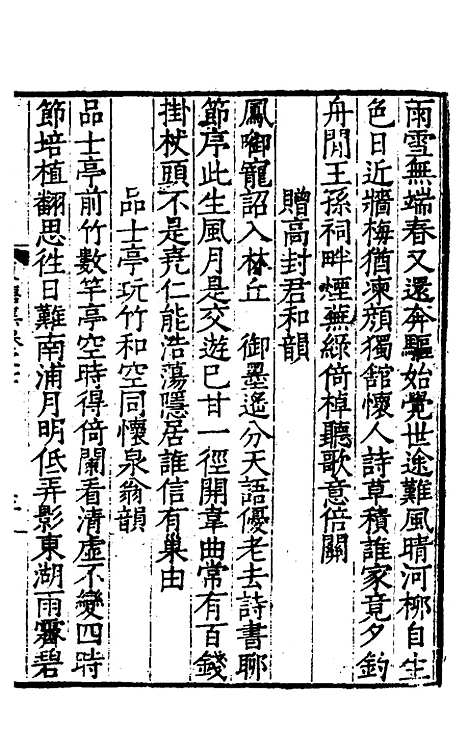 雨雪無端春又還奔驅始覺世途難風晴河柳自生
色日近牆梅猶凍顏獨舘懷人詩草積誰家竟夕釣
舟閒王孫祠畔煙蕪綠倚棹聽歌意倍關
贈高封君和韻
鳳啣寵詔入林丘　御墨遙分天語優老去詩書聊
節序此生風月是交遊已甘一徑開韋曲常有百錢
掛杖頭不是堯仁能浩蕩隱居誰信有巢由
品士亭玩竹和空同懷泉翁韻
品士亭前竹數竿亭空時得倚闌看清虛不變四時
節培植翻思徃日難南浦月明低弄影東湖雨霽碧